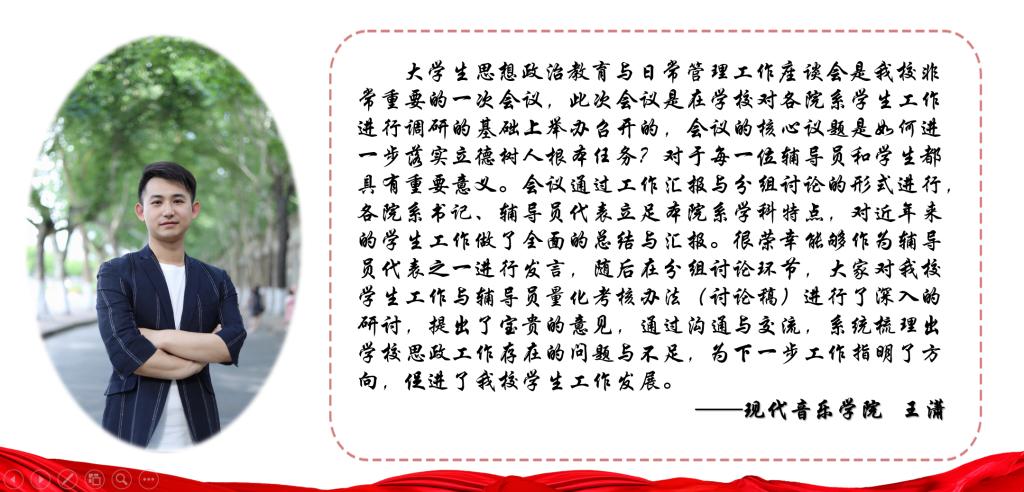 大学生思想政治教育与日常管理工作座谈会是我校非
常重要的一次会议，此次会议是在学校对各院系学生工作
进行调研的基础上举办召开的，会议的核心议题是如何进
一步落实立德树人根本任务？对于每一位辅导员和学生都
具有重要意义。会议通过工作汇报与分组讨论的形式进行，
各院系书记、辅导员代表立足本院系学科特点，对近年来
的学生工作做了全面的总结与汇报。很荣幸能够作为辅导
员代表之一进行发言，随后在分组讨论环节，大家对我校
学生工作与辅导员量化考核办法（讨论稿）进行了深入的
研讨，提出了宝贵的意见，通过沟通与交流，系统梳理出
学校思政工作存在的问题与不足，为下一步工作指明了方
向，促进了我校学生工作发展。
——现代音乐学院 王潇